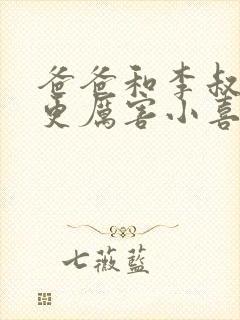 爸爸和李叔
更厲害小喜
七薇藍